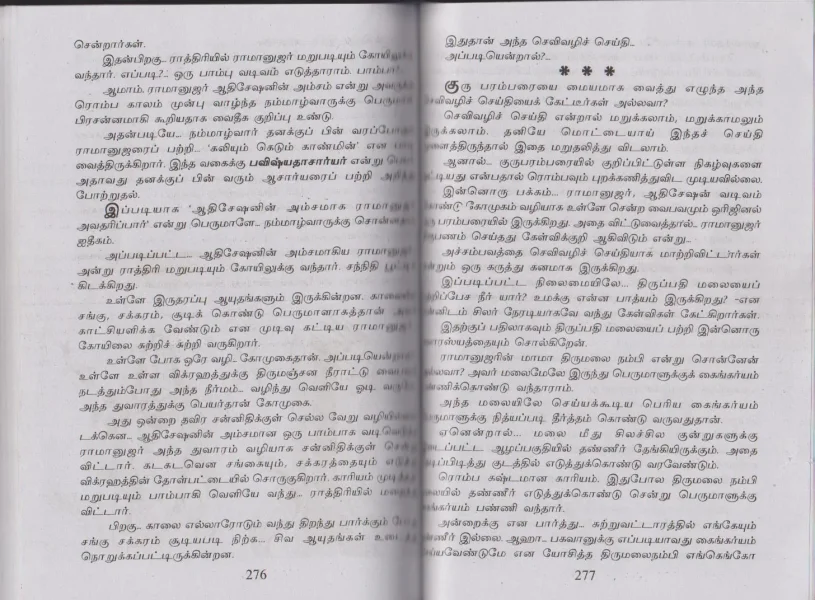 சென்றார்கள்.
இதன்பிறகு.. ராத்திரியில் ராமானுஜர் மறுபடியும்
வந்தார். எப்படி?.. ஒரு பாம்பு வடிவம் எடுத்தாராம். பாம்பா?
ஆமாம். ராமானுஜர் ஆதிசேஷனின் அம்சம் என்று
ரொம்ப காலம் முன்பு வாழ்ந்த நம்மாழ்வாருக்கு
பிரசன்னமாகி கூறியதாக வைதீக குறிப்பு உண்டு.
அதன்படியே... நம்மாழ்வார் தனக்குப் பின்
ராமானுஜரைப் பற்றி... 'கலியும் கெடும் காண்மின்' என
வைத்திருக்கிறார். இந்த வகைக்கு பவிஷ்யதாசார்யர் என்று
அதாவது தனக்குப் பின் வரும் ஆசார்யரைப் பற்றி
போற்றுதல்.
இப்படியாக 'ஆதிசேஷனின் அம்சமாக
அவதரிப்பார்' என்று பெருமாளே.. நம்மாழ்வாருக்கு
ஐதீகம்.
அப்படிப்பட்ட.... ஆதிசேஷனின் அம்சமாகிய
அன்று ராத்திரி மறுபடியும் கோயிலுக்கு வந்தார். சந்நிதி
கிடக்கிறது.
உள்ளே இருதரப்பு ஆயுதங்களும் இருக்கின்றன.
சங்கு, சக்கரம், சூடிக் கொண்டு பெருமாளாகத்தான்
காட்சியளிக்க வேண்டும் என முடிவு கட்டிய
கோயிலை சுற்றிச் சுற்றி வருகிறார்.
உள்ளே போக ஒரே வழி.. கோமுகைதான்.
உள்ளே உள்ள விக்ரஹத்துக்கு திருமஞ்சன நீராட்டு
நடத்தும்போது அந்த நீர்மம்.. வழிந்து வெளியே ஓடி
அந்த துவாரத்துக்கு பெயர்தான் கோமுகை.
அது ஒன்றை தவிர சன்னிதிக்குள் செல்ல வேறு
டக்கென... ஆதிசேஷனின் அம்சமான ஒரு பாம்பாக
ராமானுஜர் அந்த துவாரம் வழியாக சன்னிதிக்குள்
விட்டார். கடகடவென சங்கையும், சக்கரத்தையும்
விக்ரஹத்தின் தோள்பட்டையில் சொருகுகிறார். காரியம்
மறுபடியும் பாம்பாகி வெளியே வந்து... ராத்திரியில்
விட்டார்.
பிறகு.. காலை எல்லாரோடும் வந்து திறந்து பார்க்கும்
சங்கு சக்கரம் சூடியபடி நிற்க... சிவ ஆயுதங்கள்
நொறுக்கப்பட்டிருக்கின்றன.
276
இதுதான் அந்த செவிவழிச் செய்தி..
அப்படியென்றால்?..
* * *
குரு பரம்பரையை மையமாக வைத்து எழுந்த அந்த
செவிவழிச் செய்தியைக் கேட்டீர்கள் அல்லவா?
செவிவழிச் செய்தி என்றால் மறுக்கலாம், மறுக்காமலும்
இருக்கலாம். தனியே மொட்டையாய் இந்தச் செய்தி
இதை மறுதலித்து விடலாம்.
ஆனால்... குருபரம்பரையில் குறிப்பிட்டுள்ள நிகழ்வுகளை
என்பதால் ரொம்பவும் புறக்கணித்துவிட முடியவில்லை.
இன்னொரு பக்கம்... ராமானுஜர், ஆதிசேஷன் வடிவம்
கொண்டு கோமுகம் வழியாக உள்ளே சென்ற வைபவமும் ஒரிஜினல்
பரம்பரையில் இருக்கிறது. அதை விட்டுவைத்தால்.. ராமானுஜர்
செய்தது கேள்விக்குறி ஆகிவிடும் என்று..
அச்சம்பவத்தை செவிவழிச் செய்தியாக மாற்றிவிட்டார்கள்
என்றும் ஒரு கருத்து கனமாக இருக்கிறது.
இப்படிப்பட்ட நிலைமையிலே... திருப்பதி மலையைப்
நீர் யார்? உமக்கு என்ன பாத்யம் இருக்கிறது? -என
என்னிடம் சிலர் நேரடியாகவே வந்து கேள்விகள் கேட்கிறார்கள்.
இதற்குப் பதிலாகவும் திருப்பதி மலையைப் பற்றி இன்னொரு
சொல்கிறேன்.
ராமானுஜரின் மாமா திருமலை நம்பி என்று சொன்னேன்
அல்லவா? அவர் மலைமேலே இருந்து பெருமாளுக்குக் கைங்கர்யம்
பண்ணிக்கொண்டு வந்தாராம்.
அந்த மலையிலே செய்யக்கூடிய பெரிய கைங்கர்யம்
பெருமாளுக்கு நித்யப்படி தீர்த்தம் கொண்டு வருவதுதான்.
ஏனென்றால்... மலை மீது சிலச்சில குன்றுகளுக்கு
ஆழப்பகுதியில் தண்ணீர் தேங்கியிருக்கும். அதை
குடத்தில் எடுத்துக்கொண்டு வரவேண்டும்.
ரொம்ப கஷ்டமான காரியம். இதுபோல திருமலை நம்பி
தண்ணீர் எடுத்துக்கொண்டு சென்று பெருமாளுக்கு
கைங்கர்யம் பண்ணி வந்தார்.
அன்றைக்கு என பார்த்து... சுற்றுவட்டாரத்தில் எங்கேயும்
தண்ணீர் இல்லை. ஆஹா... பகவானுக்கு எப்படியாவது கைங்கர்யம்
செய்யவேண்டுமே என யோசித்த திருமலைநம்பி எங்கெங்கோ
277